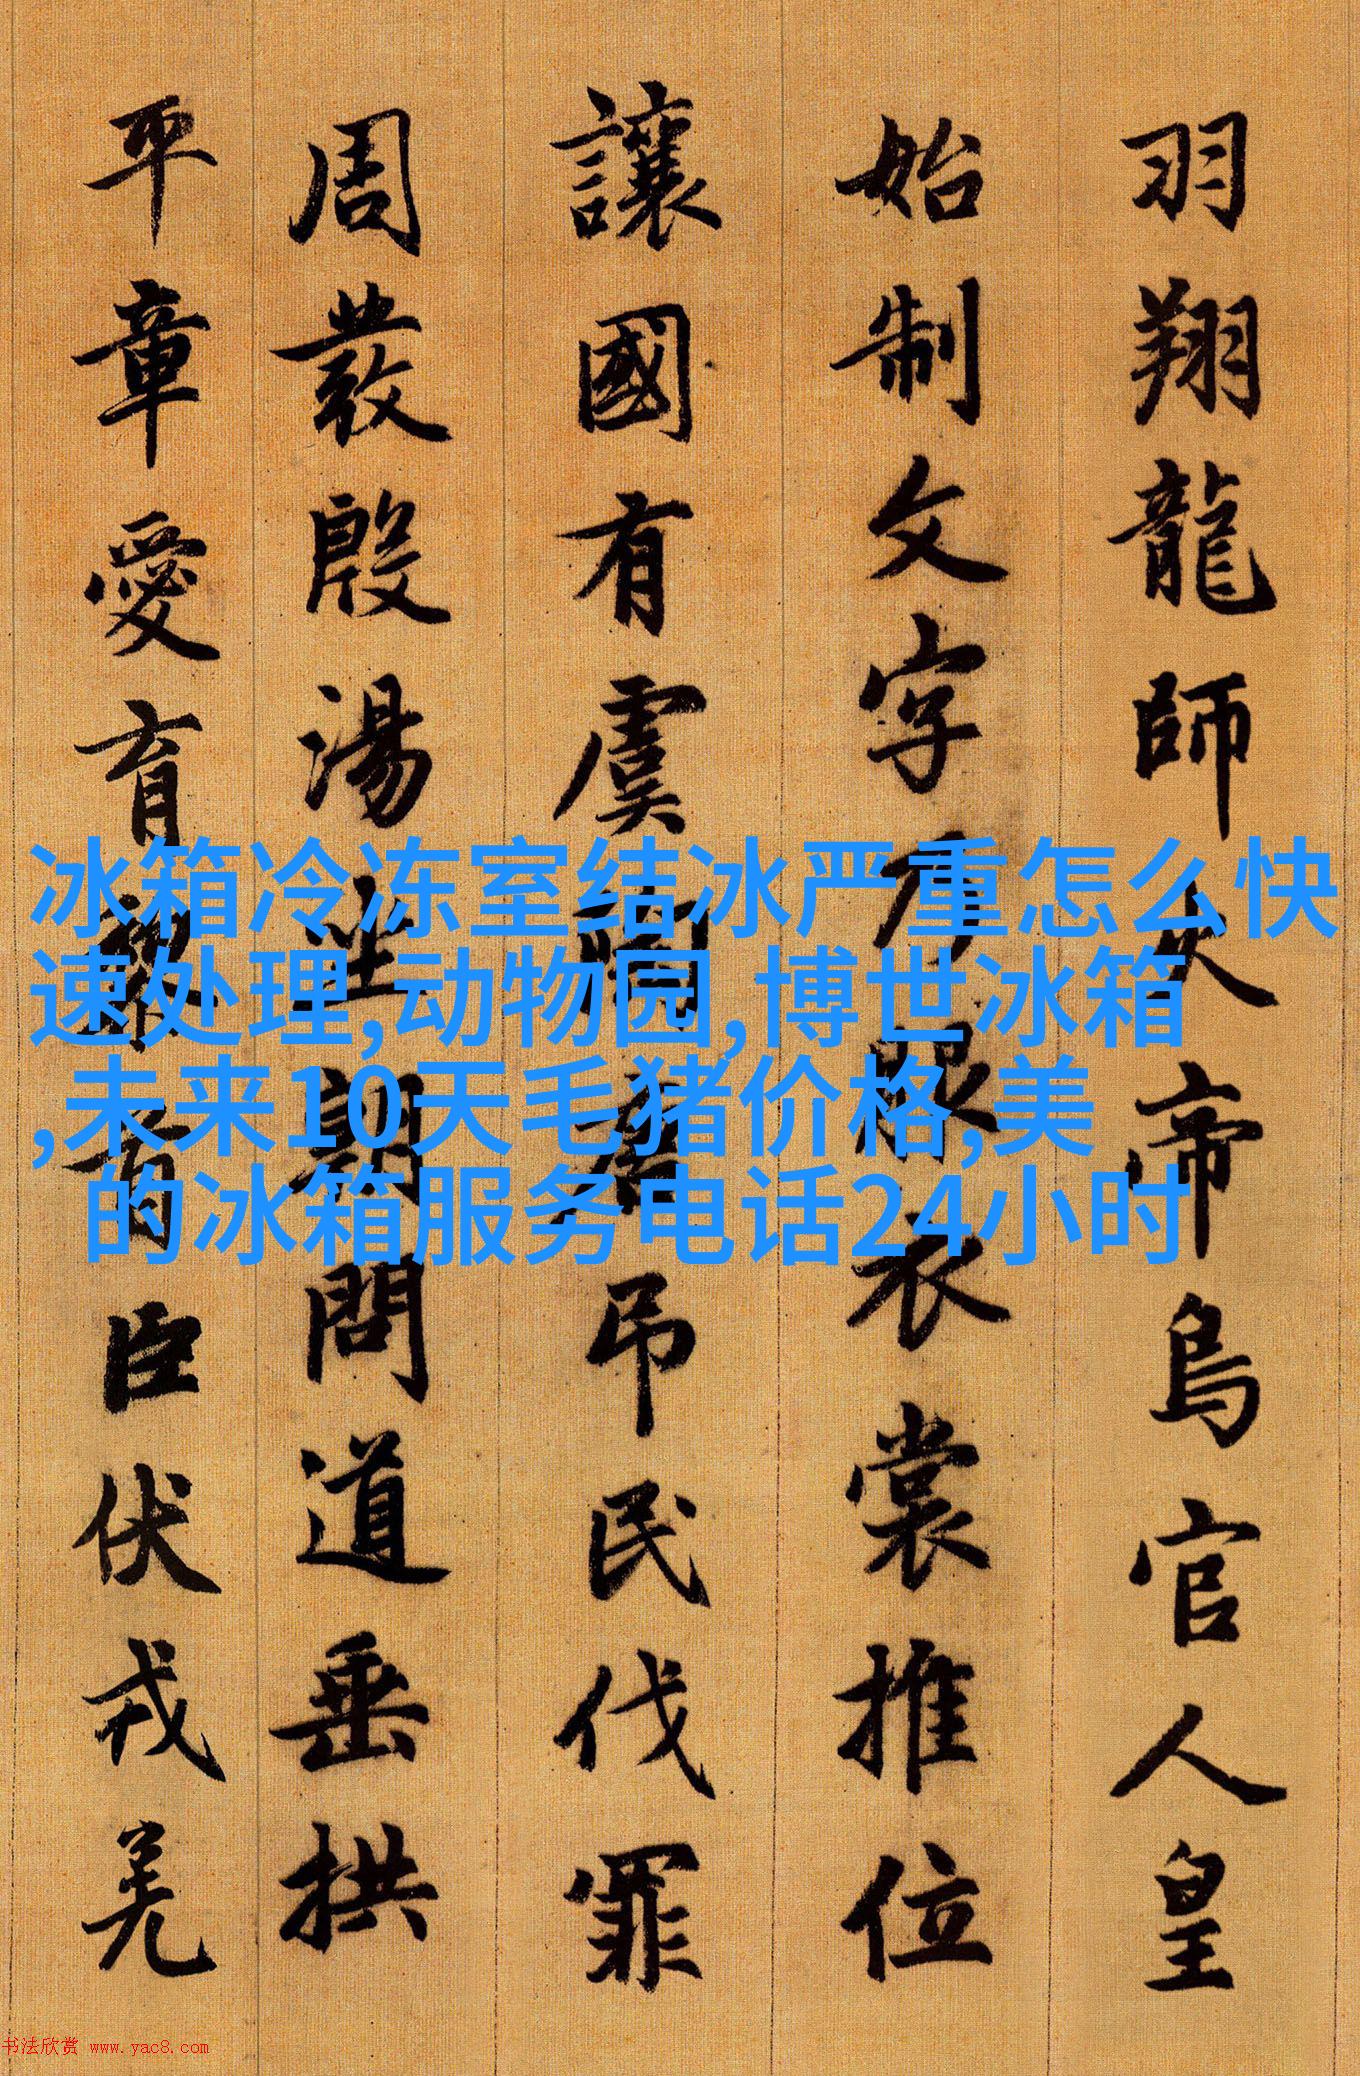 羽翔龍師火帝鳥官人皇
始制文字乃服衣裳推位
讓國有虞陶唐吊民伐罪
周發殷湯坐朝問道垂拱
平章愛育黎首臣伏戎羌
冰箱冷冻室结冰严重怎么快
速处理,动物园,博世冰箱
,未来10天毛猪价格,美
的冰箱服务电话24小时
书法欣赏 www.yac8.com